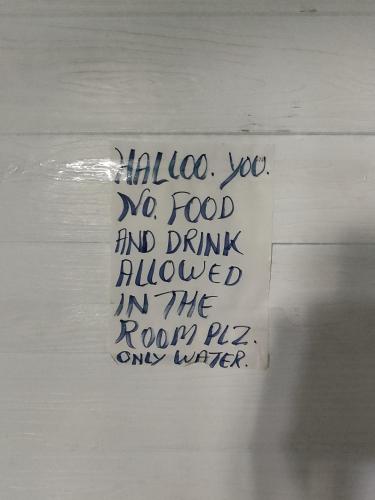 HALLOO. YOU.
NO. FOOD
AND DRINK
ALLOWED
IN THE
ROOM PLZ.
ONLY WATER.